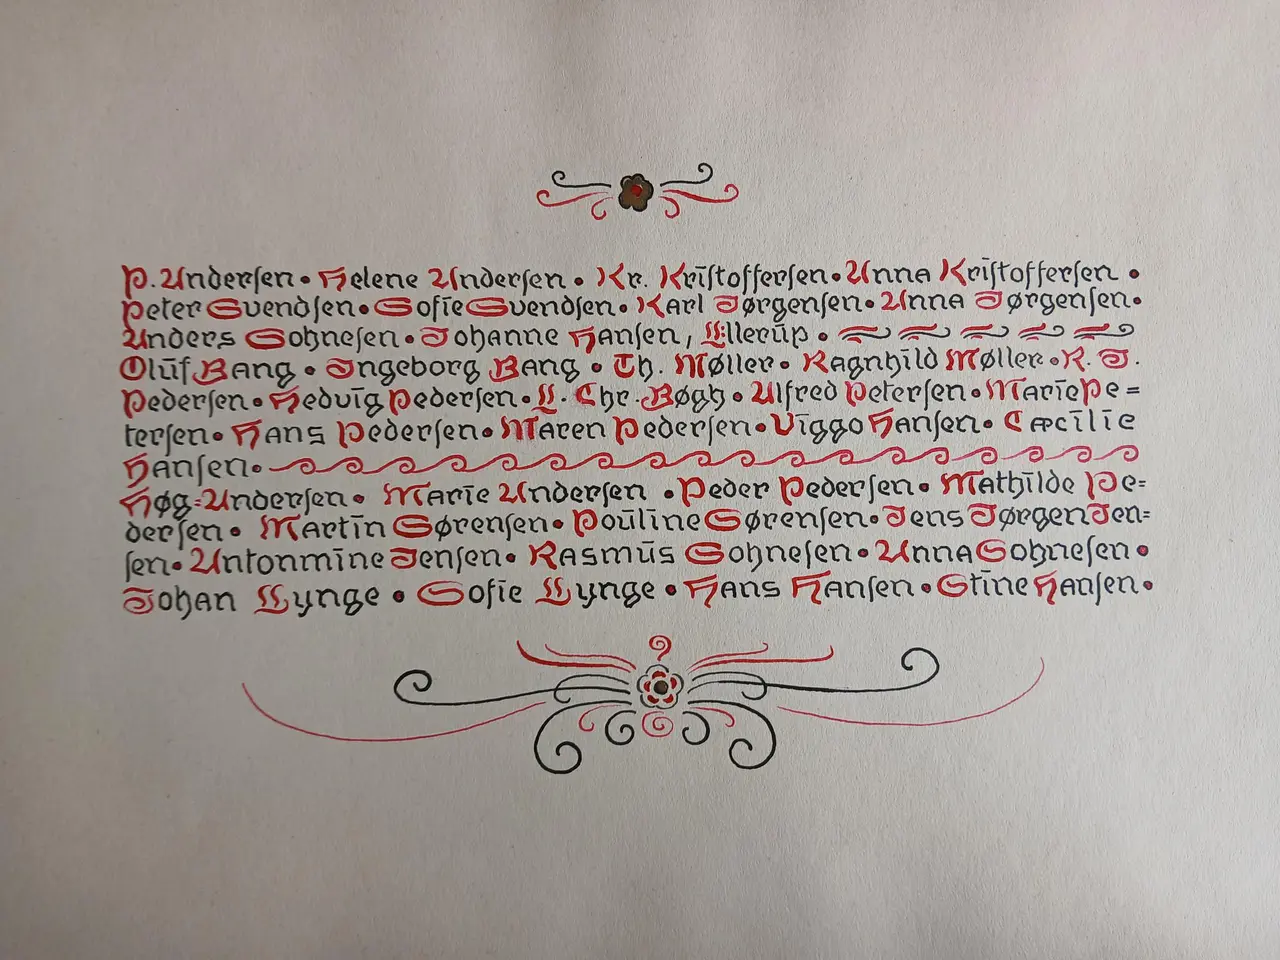 P. Andersen • Helene Andersen • Kr. Kristoffersen • Anna Kristoffersen •
Peter Svendsen • Sofie Svendsen • Karl Jørgensen • Anna Jørgensen •
Anders Sohnesen • Johanne Hansen, Lillerup •
Oluf Bang • Ingeborg Bang • Th. Møller • Ragnhild Møller • K. J.
Pedersen • Hedvig Pedersen • L. Chr. Bøgh • Alfred Petersen • Marie Pe=
tersen • Hans Pedersen • Maren Pedersen • Viggo Hansen • Cæcilie
Hansen •
Høg=Andersen • Marie Andersen • Peder Pedersen • Mathilde Pe=
dersen • Martin Sørensen • Pouline Sørensen • Jens Jørgen Jen=
sen • Antonmine Jensen • Rasmus Sohnesen • Anna Sohnesen •
Johan Lynge • Sofie Lynge • Hans Hansen • Stine Hansen •